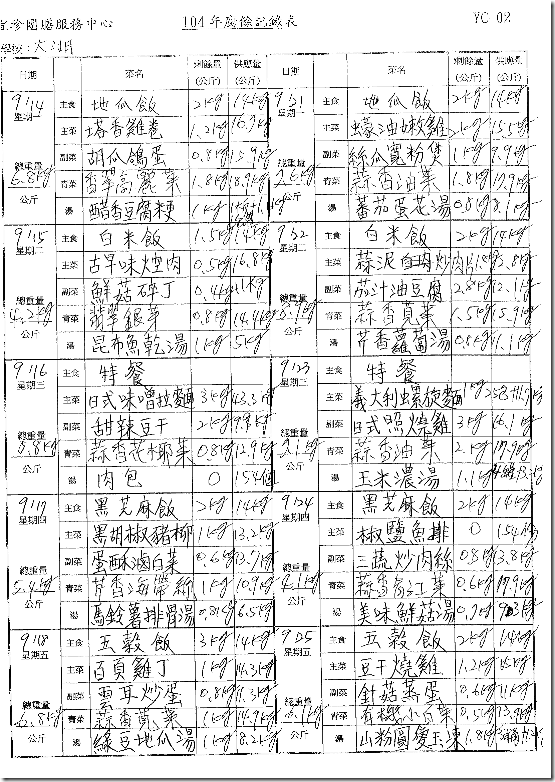 服務中心 104年廚餘記錄表 YC 02
學校:大湖
日期 菜名 剩餘量(公斤) 供應量(公斤) 日期 菜名 剩餘量(公斤) 供應量(公斤)
9/14 星期一 總重量 6.8kg 公斤
主食 地瓜飯 2kg 14kg
主菜 塔香雞卷 1.2kg
副菜 胡瓜鴿蛋 0.8kg
青菜 香翠高麗菜 1.8kg 18.9kg
湯 醋香豆腐粳 1kg
9/21 星期一 總重量 公斤
主食 地瓜飯 2kg 14kg
主菜 蠔油嫩雞 2kg 15.5kg
副菜 絲瓜寬粉煲 1kg 9.9kg
青菜 蒜香油菜 1.8kg 17.9kg
湯 番茄蛋花湯 0.8kg 8.1kg
9/15 星期二 總重量 4.2kg 公斤
主食 白米飯 1.5kg 14kg
主菜 古早味焢肉 0.5kg 16.8kg
副菜 鮮菇碎丁 0.4kg 11kg
青菜 翡翠銀芽 0.8kg 14.4kg
湯 昆布魚乾湯 1kg 5kg
9/22 星期二 總重量 公斤
主食 白米飯 2kg 14kg
主菜 蒜泥白肉炒肉片
副菜 茄汁油豆腐 2.8kg 12.1kg
青菜 蒜香莧菜 1.5kg 15.9kg
湯 芹香蘿蔔湯 0.8kg
9/16 星期三 總重量 公斤
主食 特餐
主菜 日式味噌拉麵 3kg 43.3kg
副菜 甜辣豆干 2kg 9.8kg
青菜 蒜香花椰菜 0.8kg 12.9kg
湯 肉包 0 154個
9/23 星期三 總重量 公斤
主食 特餐
主菜 義大利螺旋麵
副菜 日式照燒雞 3kg 16.1kg
青菜 蒜香油菜 2kg 17.9kg
湯 玉米濃湯 1.1kg
9/17 星期四 總重量 5.4kg 公斤
主食 黑芝麻飯 2kg 14kg
主菜 黑胡椒豬柳 1kg 13.2kg
副菜 蛋酥滷白菜 0.6kg 13.7kg
青菜 芹香海帶絲 1kg 10.9kg
湯 馬鈴薯排骨湯 0.8kg 6.5kg
9/24 星期四 總重量 4.1kg 公斤
主食 黑芝麻飯 2kg 14kg
主菜 椒鹽魚排 0 154
副菜 三蔬炒肉絲 0.8kg 13.8kg
青菜 蒜香 菜 0.6kg 17.9kg
湯 美味鮮菇湯 0.7kg
9/18 星期五 總重量 6.8kg 公斤
主食 五穀飯 3kg 14kg
主菜 百頁雞丁 1kg 14.3kg
副菜 雲耳炒蛋 0.8kg 11.3kg
青菜 蒜香 菜 1kg 14.9kg
湯 綠豆地瓜湯 1kg 8.2kg
9/25 星期五 總重量 公斤
主食 五穀飯 2kg 14kg
主菜 豆干燒雞 1.2kg
副菜 針菇蒸蛋 0.6kg 11kg
青菜 有機小白菜 0.5kg 13.9kg
湯 山粉圓愛玉凍 1.8kg